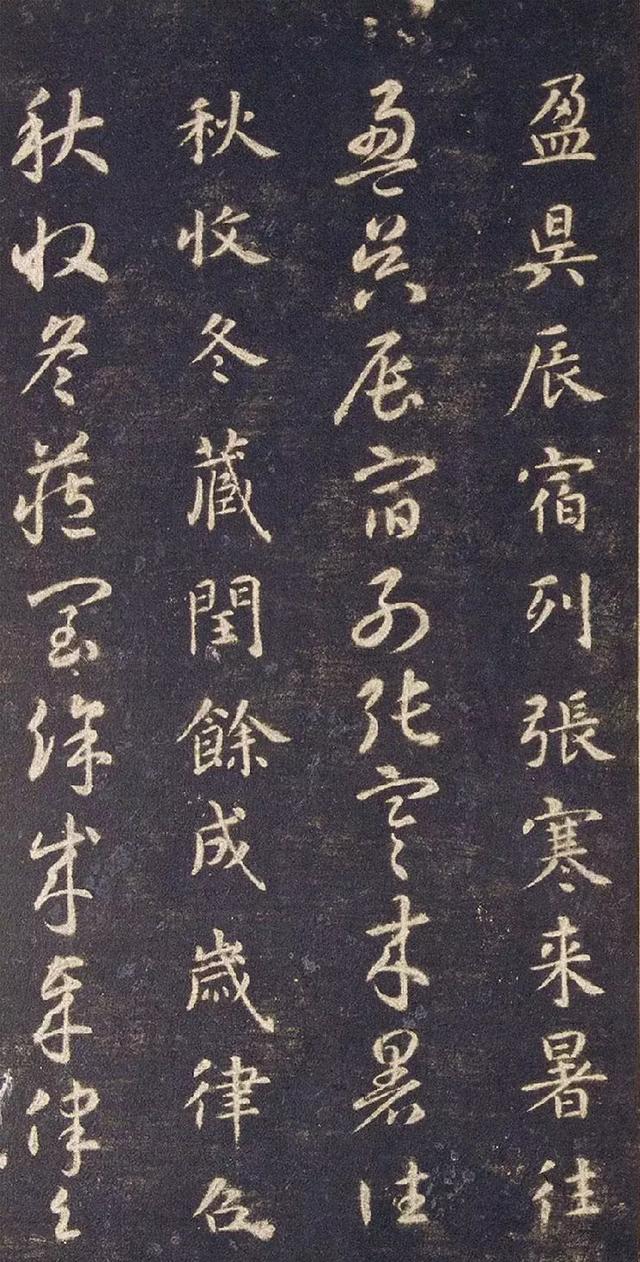 盈昃辰宿列張寒来暑往
盈昃辰宿列張寒来暑往
秋收冬藏閏餘成歳律召
秋收冬藏閏餘成歳律召